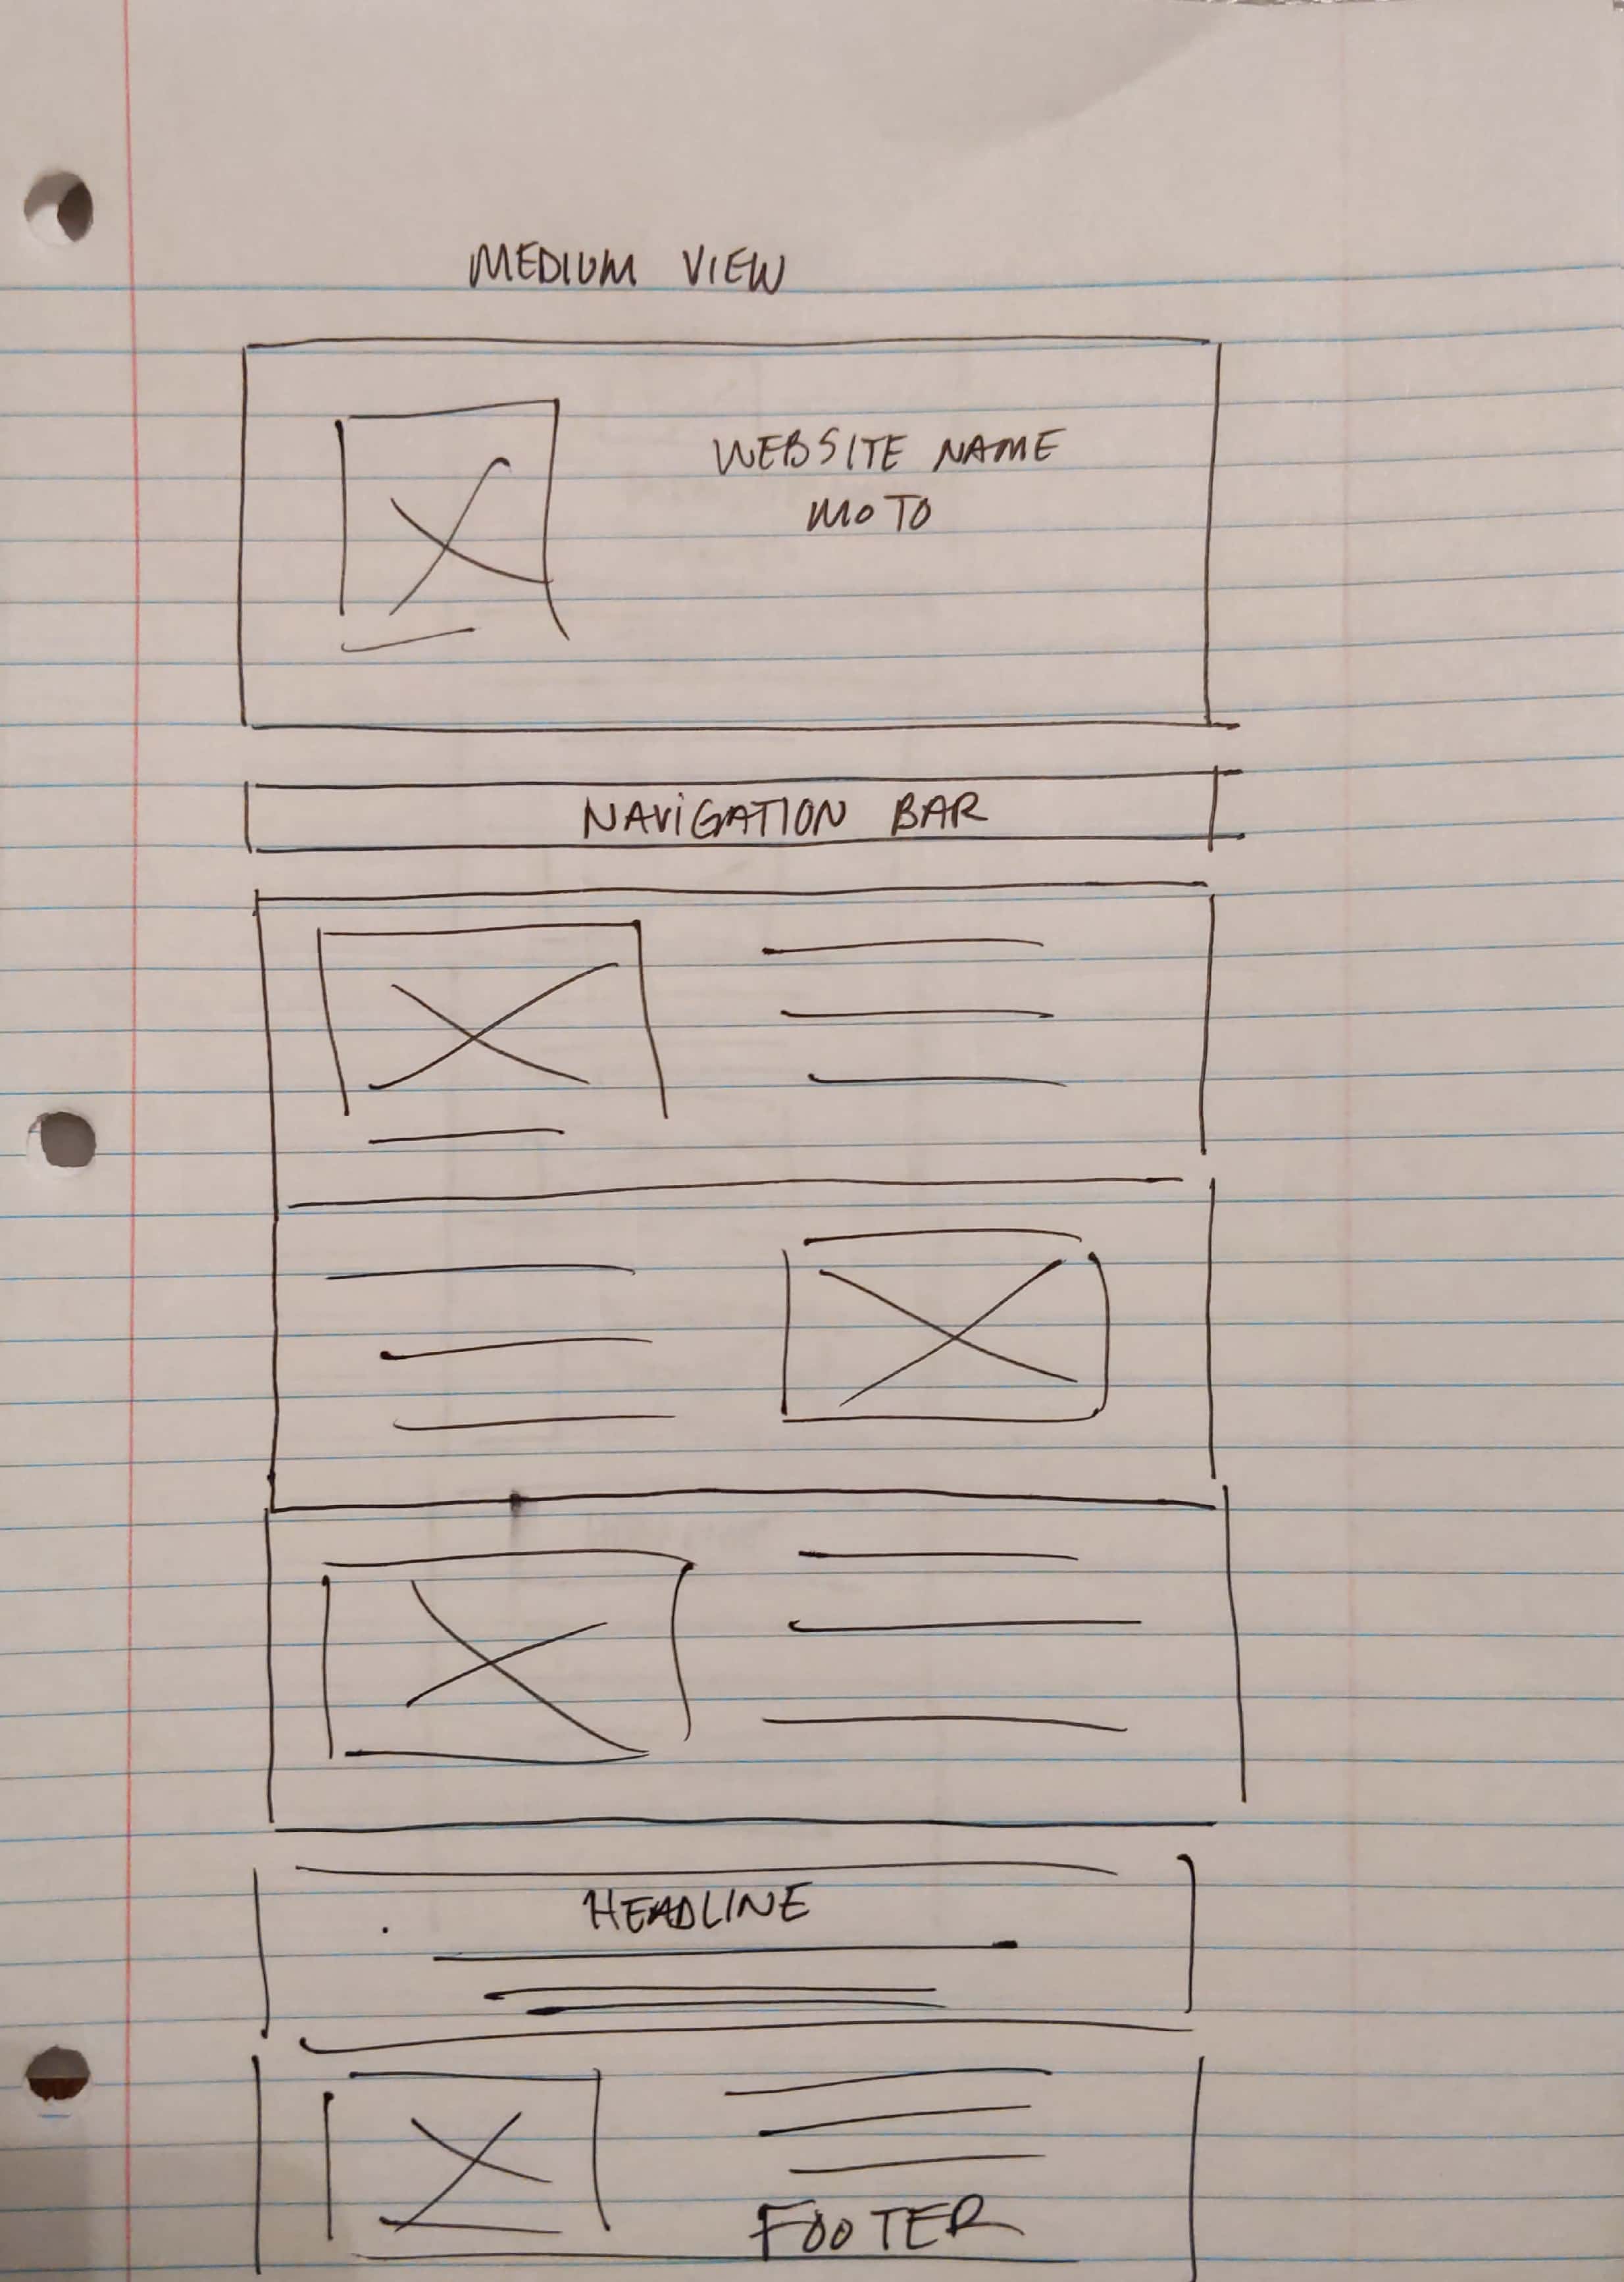 MEDIUM VIEW
WEBSITE NAME
MOTO
NAViGATION BAR
HEADLINE
FOOTER